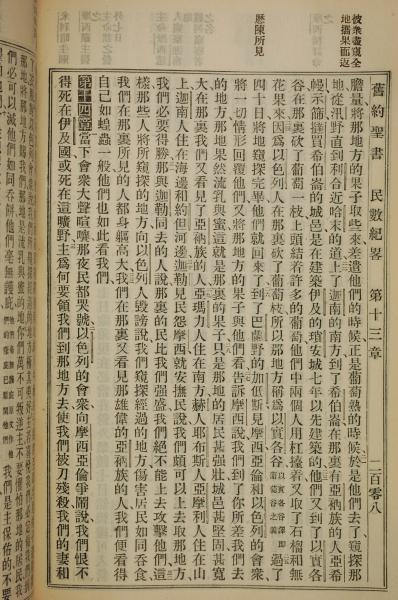 舊約聖書　民數紀畧　第十三章　二百零八
彼衆盡窺全
地攜果而返
膽量將那地方的果子取些來差遣他們的時候正是葡萄熟的時候於是他們去了窺探那
地從汛野直到利合近哈末的道上了迦南的南方到了希伯崙在那裏有亞衲族的人亞希
幔示篩撻買希伯崙的城邑是在建築伊及的瑣安城七年以先建築的他們又到了以實各
谷在那裏砍了葡萄一枝上頭結着許多的葡萄他們中兩個人用杠擡着又取了石榴和無
花果來因為以色列人在那裏砍了葡萄枝所以那地方稱為以實各谷以實各谷譯即葡萄谷之義過了
歷陳所見
四十日將地窺探完畢他們就回來了到了巴蘭野的加低斯見摩西亞倫和以色列的會衆
將一切情形回覆他們又將那地方的果子與他們看告訴摩西說我們到了你所差我們去
的地方那地果然流乳與蜜這就是那裏的果子只是那地的居民甚强壯城邑甚堅固甚寬
大在那裏我們又看見了亞衲族的人亞瑪力人住在南方赫人耶布斯人亞摩利人住在山
上迦南人住在海邊和約但河邊迦勒見民怨摩西就安撫民說我們頗可以上去取那地方
我們必要得勝那與迦勒同去的人說那裏的民比我們强盛我們絕不能上去攻擊他們這
樣那些人將所窺探的地方向以色列人毀謗說我們窺探經過的地方傷害居民如同吞食
我們在那裏所見的人都身軀高大我們在那裏又看見那雄偉的亞衲族的人我們便看得
自己如蝗蟲一般他們也如此看我們
第十四章當下會衆大聲喧嚷那夜民都哭號以色列的會衆向摩西亞倫爭鬧說我們恨不
得死在伊及國或死在這曠野主為何要領我們到那地方去使我們被刀殘殺我們的妻和